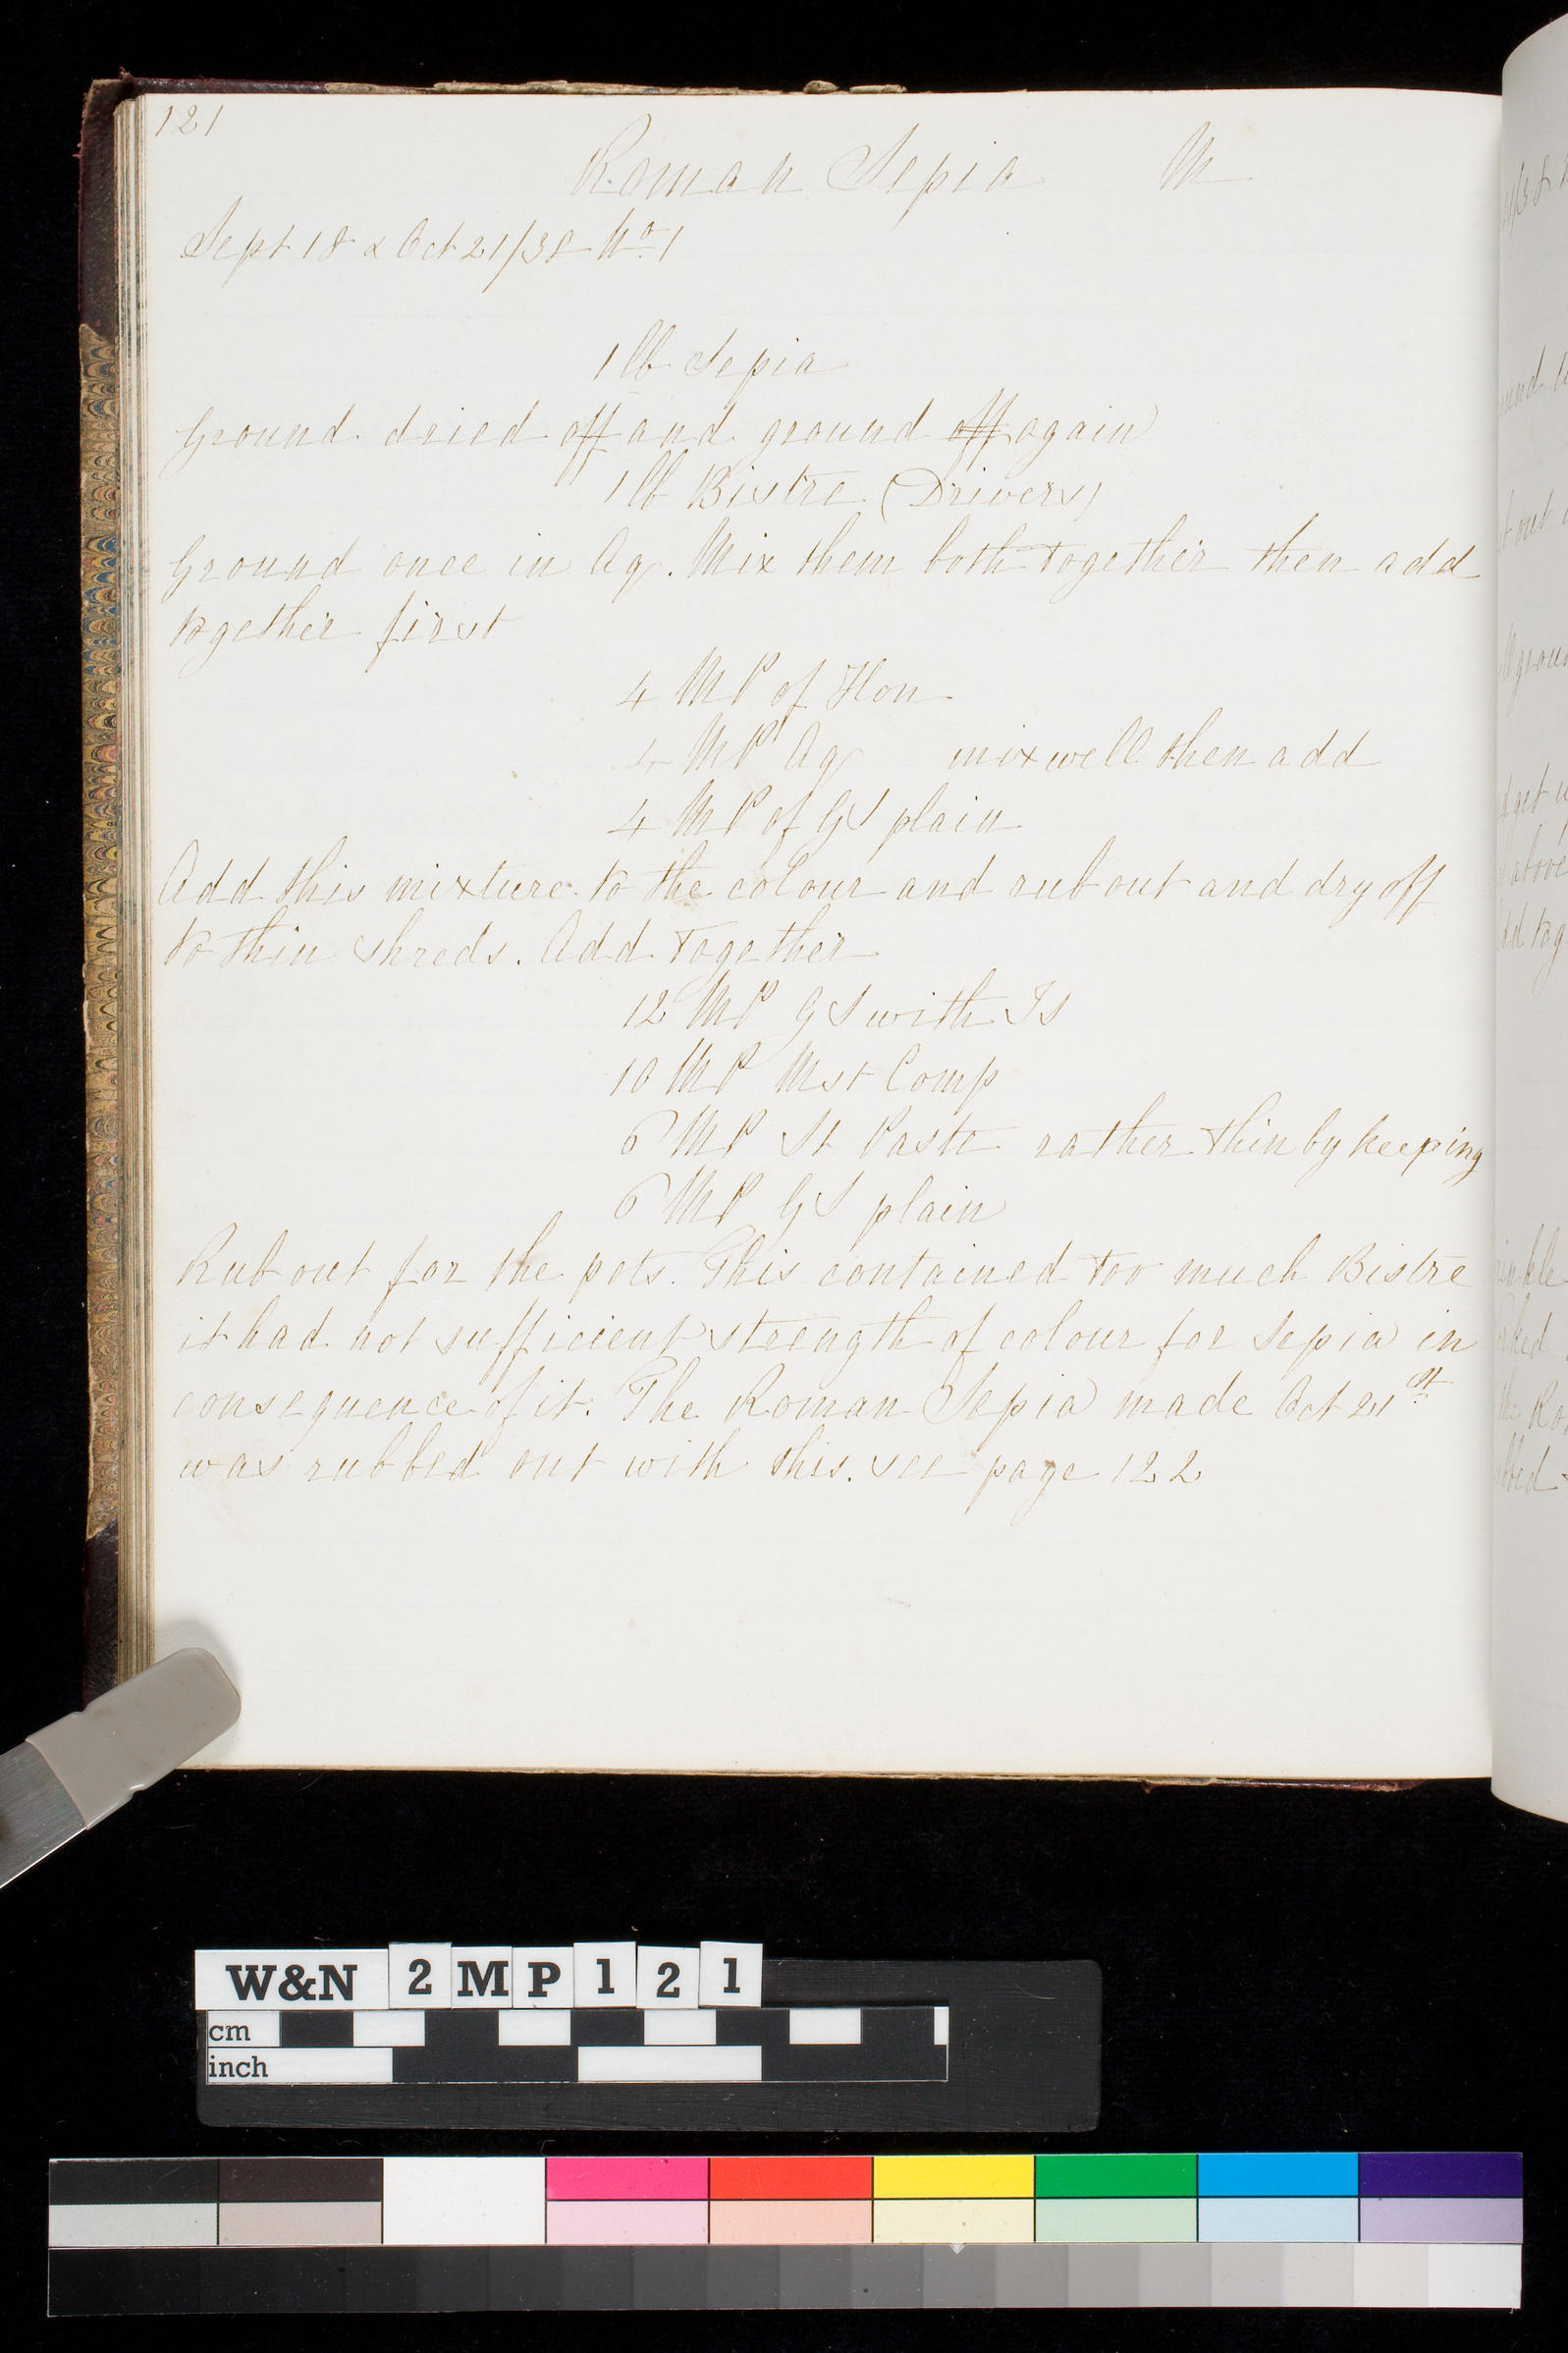 121
Roman Sepia M
Sept 18 & Oct 21/38 No. 1
1 lb Sepia
Ground dried off and ground off again
1 lb Bistre (Drivers)
Ground once in Aq. Mix them both together then add
together first
4 MP of Hon
4 MP Aq mix well then add
4 MP of GS plain
Add this mixture to the colour and rub out and dry off
to thin shreds. Add together
12 MP GS with Is
10 MP Mst Comp
6 MP St Paste rather thin by keeping
6 MP GS plain
Rub out for the pots. This contained too much Bistre
it had not sufficient strength of colour for Sepia in
consequence of it. The Roman Sepia made Oct 21st
was rubbed out with this. see page 122
W&N 2MP121
cm
inch